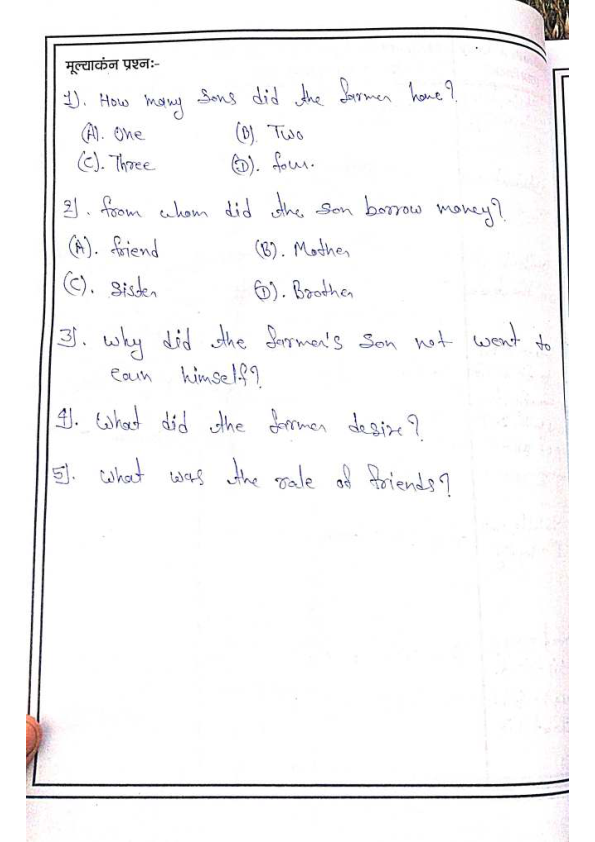 मूल्याकंन प्रश्नः-
1). How many sons did the farmer have?
(A). One (B) Two
(C). Three (D). four.
2). from whom did the son borrow money?
(A). friend (B). Mother
(C). Sister (D). Brother
3). Why did the farmer's son not went to
earn himself?
4). What did the farmer desire?
5). What was the role of friends?